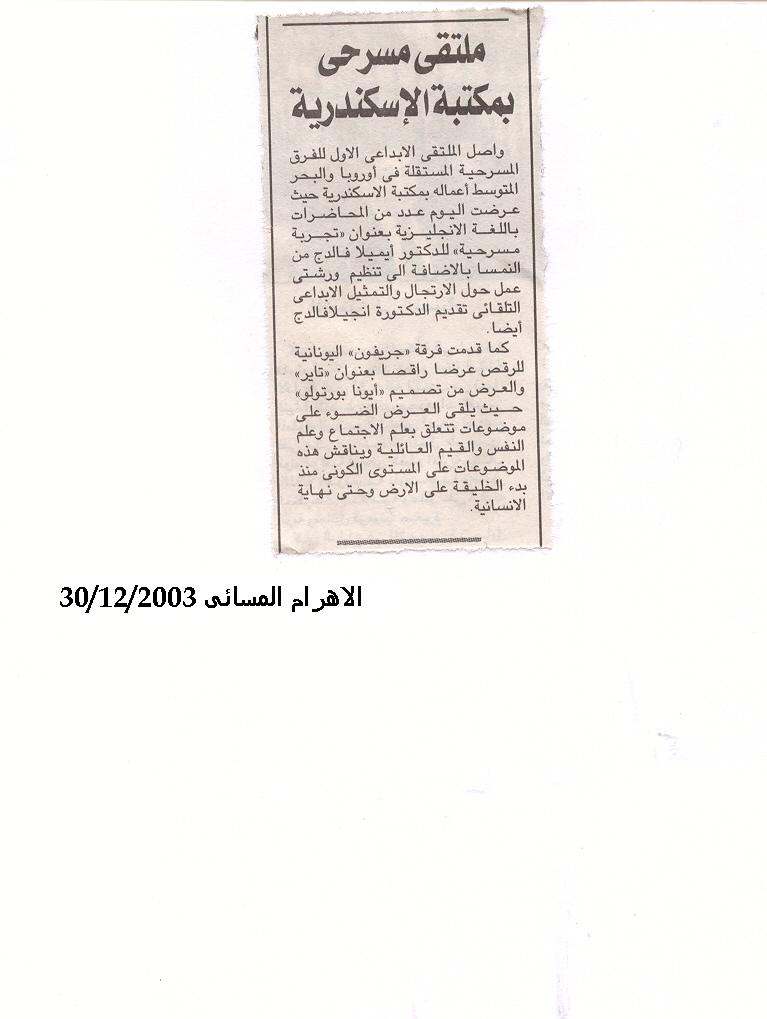 ملتقى مسرحى
بمكتبة الإسكندرية
واصل الملتقى الابداعى الاول للفرق
المسرحية المستقلة فى أوروبا والبحر
المتوسط أعماله بمكتبة الاسكندرية حيث
عرضت اليوم عدد من المحاضرات
باللغة الانجليزية بعنوان «تجربة
مسرحية» للدكتور أيميلا فالدج من
النمسا بالاضافة الى تنظيم ورشتى
عمل حول الارتجال والتمثيل الابداعى
التلقائى تقديم الدكتورة انجيلافالدج
أيضا.
كما قدمت فرقة «جريفون» اليونانية
للرقص عرضا راقصا بعنوان «تاير»
والعرض من تصميم «أيونا بورتولو»
حيث يلقى العرض الضوء على
موضوعات تتعلق بعلم الاجتماع وعلم
النفس والقيم العائلية ويناقش هذه
الموضوعات على المستوى الكونى منذ
بدء الخليقة على الارض وحتى نهاية
الانسانية.
الاهرام المسائى 30/12/2003